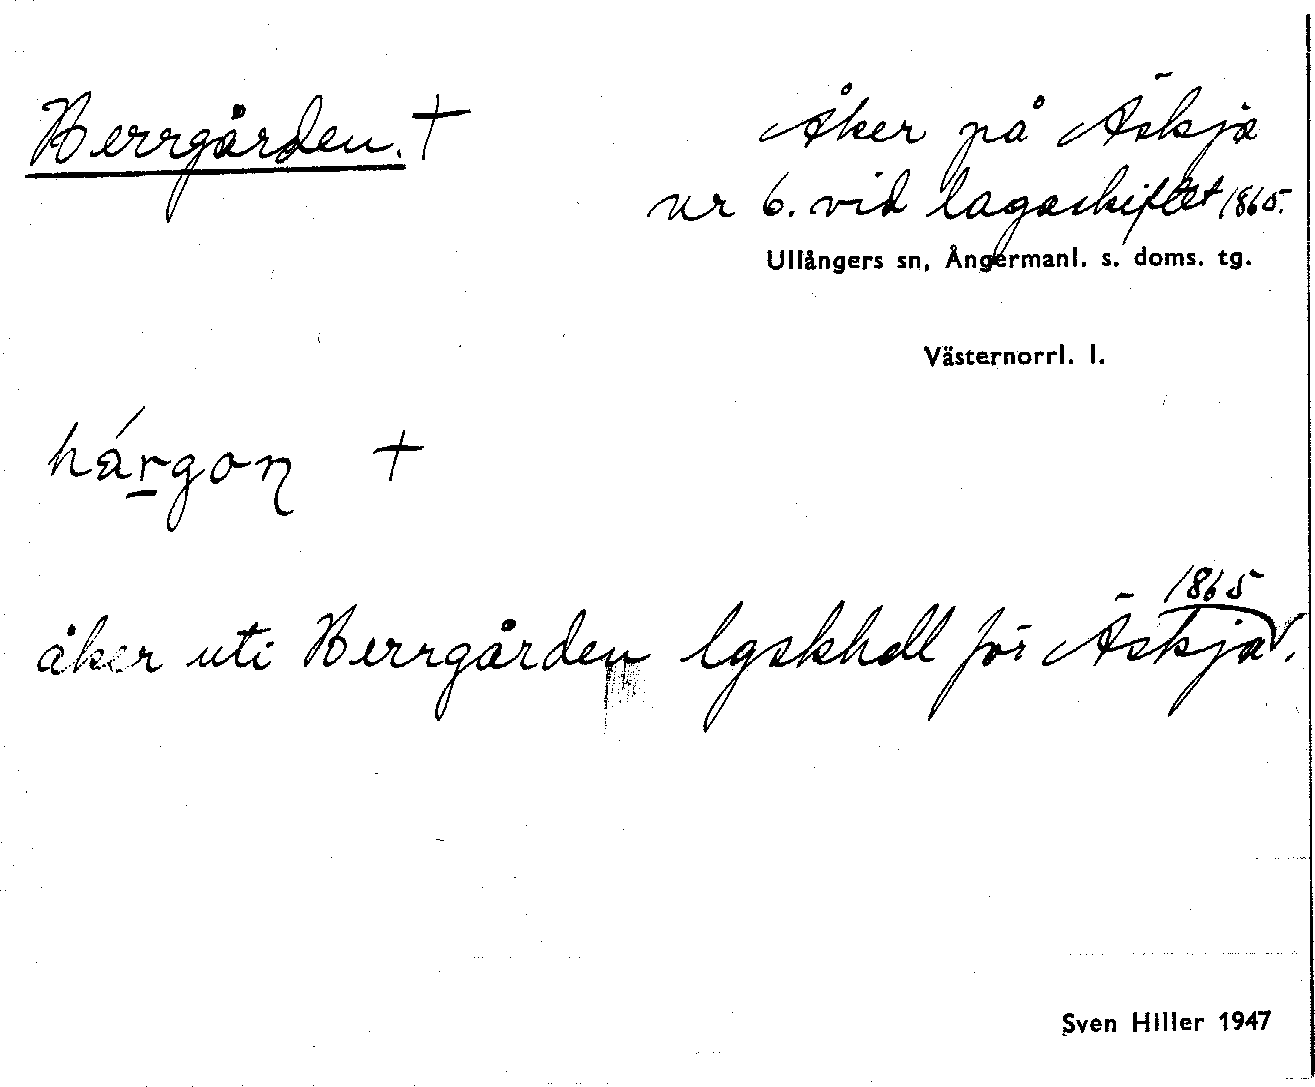 Herrgården. †
Åker på Äskja
nr 6. vid lagaskiftet 1865.
Ullångers sn, Ångermanl. s. doms. tg.
Västernorrl. l.
hárgoɳ †
åker uti Herrgården lgskhdl för Äskja 1865.
Sven Hiller 1947